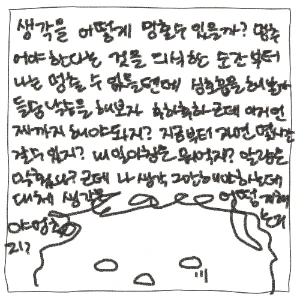 생각을 어떻게 멈출수 있을까? 멈추
어야 한다는 것을 의식한 순간부터
나는 멈출 수 없을텐데 심호흡을 해볼까
들숨 날숨을 해보자 후하후하 근데 이거 언
제까지 해야되지? 지금부터 자면 몇시간
잘수 있지? 내일 아침은 뭐먹지? 악 그만
근데 나 생각 그만해야 하는데
대체 생각을 어떻게 해
야 멈추는거
지?